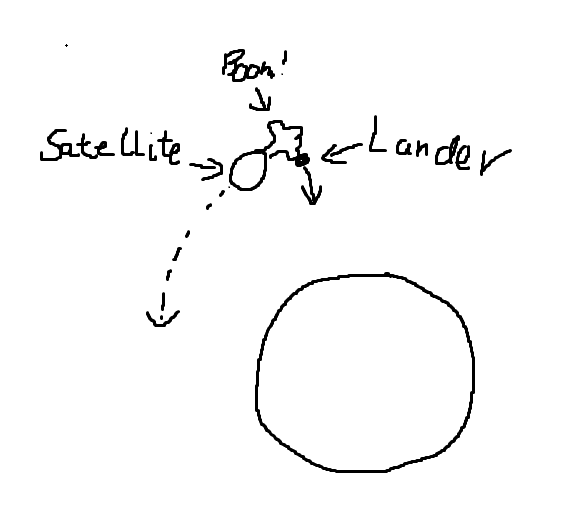 Boom!
Satellite
Lander